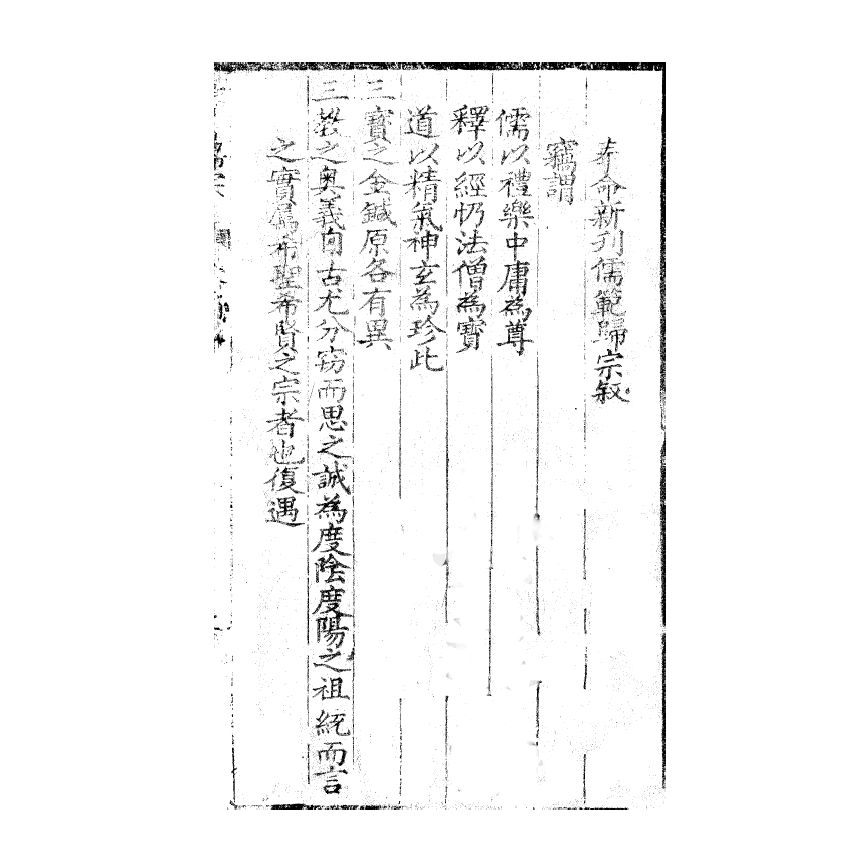 奉命新刊儒範歸宗叙
竊謂
儒以禮樂中庸為尊
釋以經忉法僧為寶
道以精氣神玄為珍此
三寶之金鍼原各有異
三教之奥義自古尤分窃而思之誠為度陰度陽之祖統而言
之實属希聖希賢之宗者也復遇
歸宗